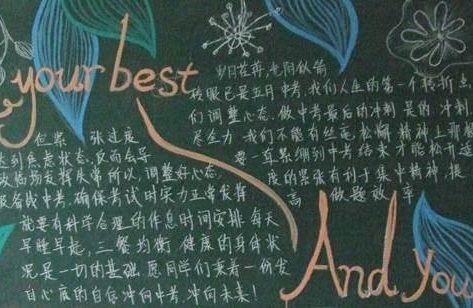 your best
岁月荏苒,光阴似箭
转眼已是五月中考,我们人生的第一个转折
们调整心态,做中考最后的冲刺是的冲刺
尽全力我们不能有丝毫松懈精神上
要一直累绷到中考结束才能松开适
度的紧张有利于集中精神,提
高做题效率
但累张过度
达到焦虑状态,反而会导
致临场发挥失常所以,调整好心态,
战中考,确保考试时实力正常发挥
就要有科学合理的作息时间安排每天
早睡早起,三餐均衡健康的身体状
况是一切的基础,愿同学们乘着一份发
自心底的自信冲向中考,冲向未来!
And You